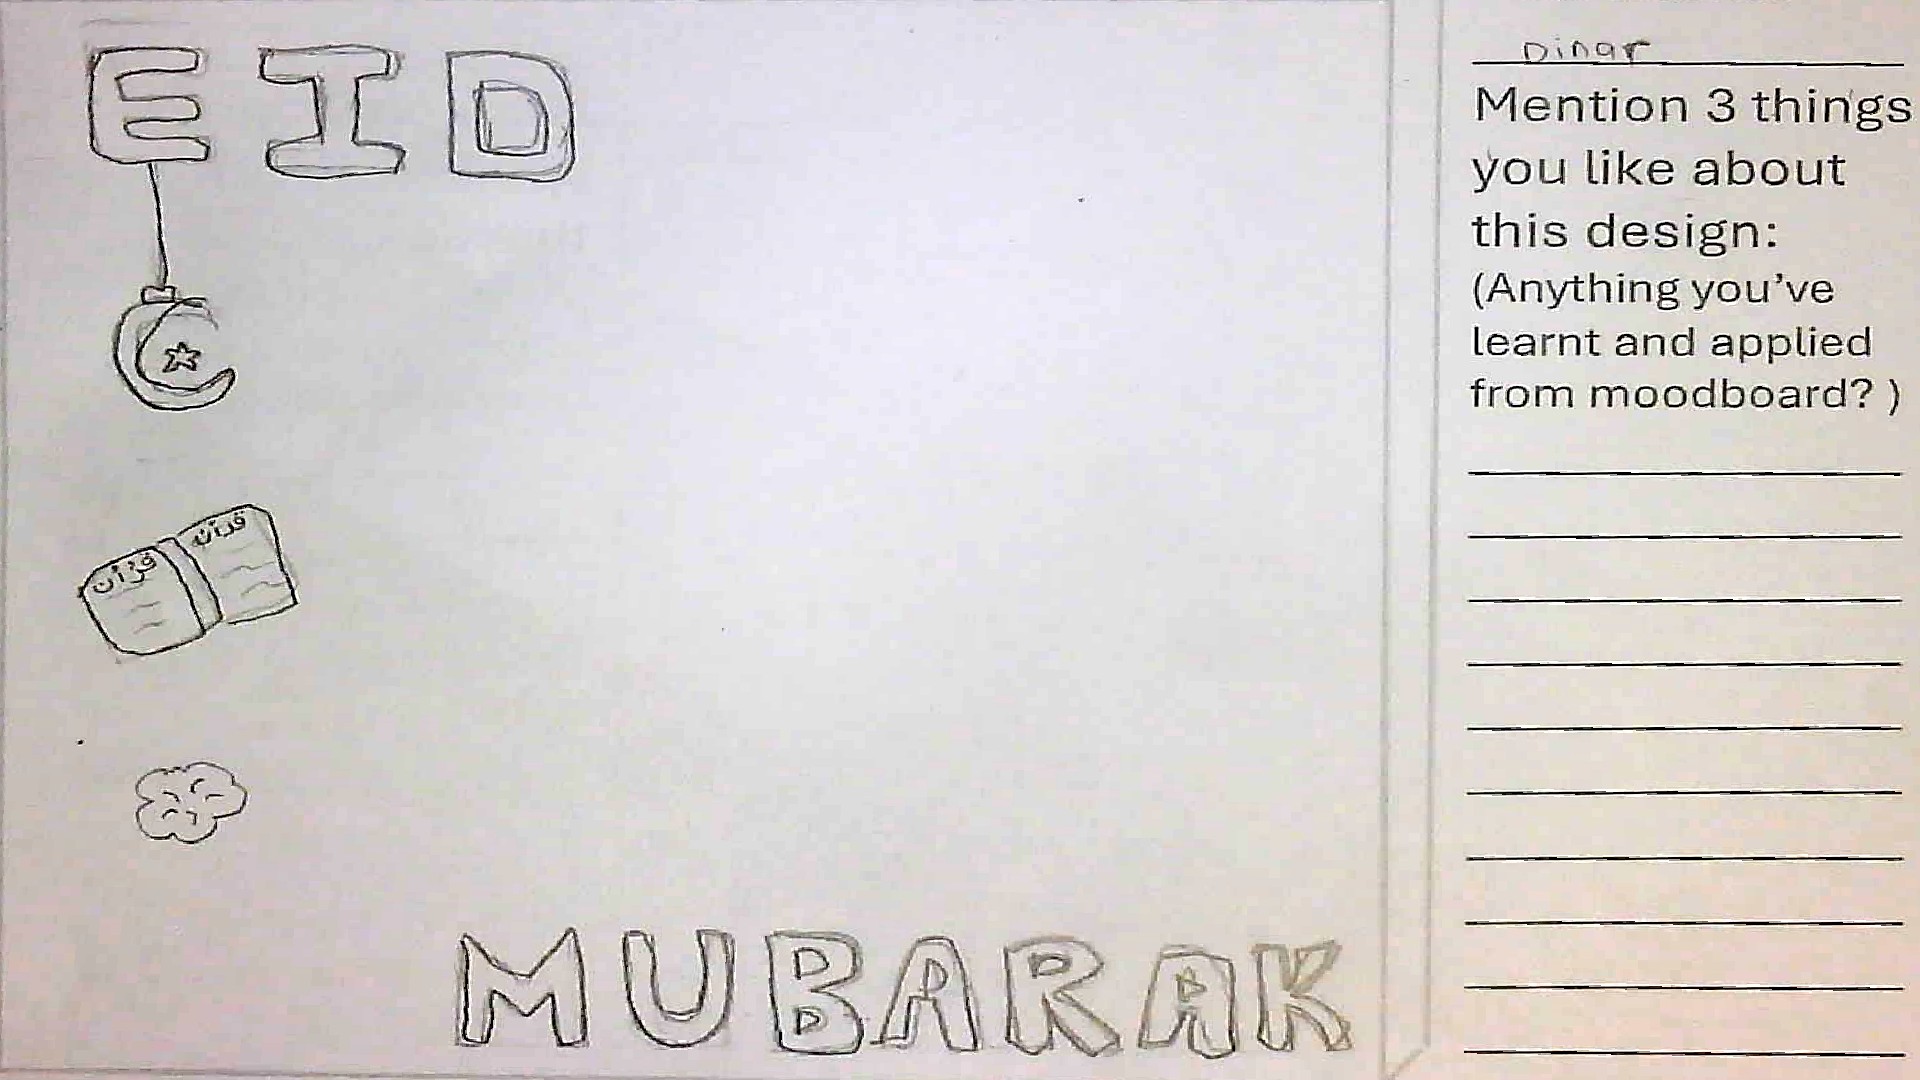 EID
قرآن
قرآن
MUBARAK
Dinar
Mention 3 things
you like about
this design:
(Anything you've
learnt and applied
from moodboard? )